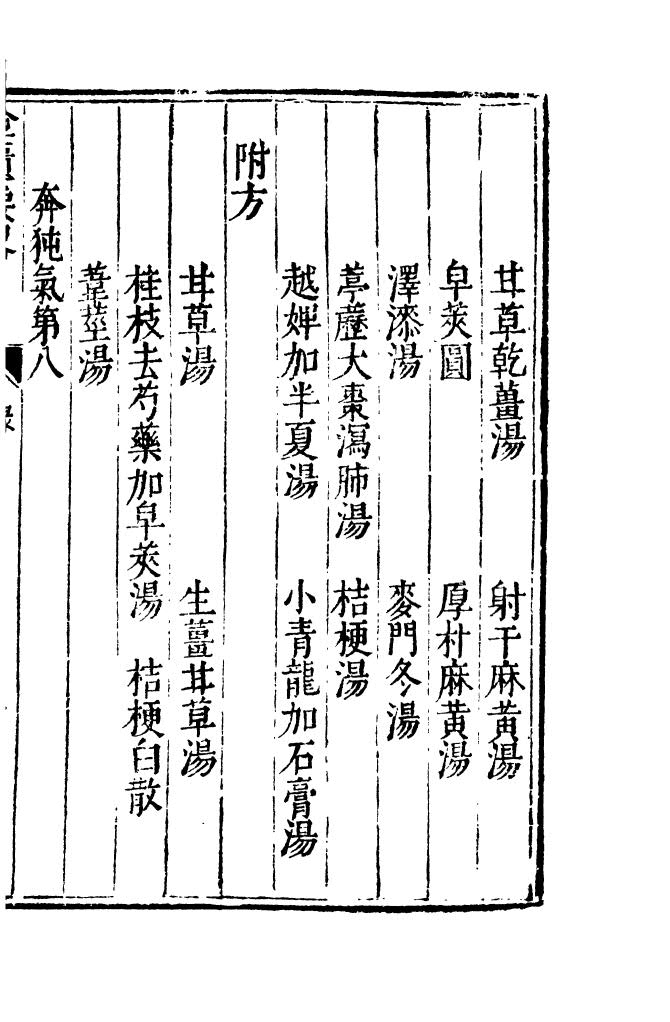 甘草乾薑湯　射干麻黃湯
皁莢圓　厚朴麻黃湯
澤漆湯　麥門冬湯
葶藶大棗瀉肺湯　桔梗湯
越婢加半夏湯　小青龍加石膏湯
附方
甘草湯　生薑甘草湯
桂枝去芍藥加皁莢湯　桔梗白散
葦莖湯
奔㹠氣第八